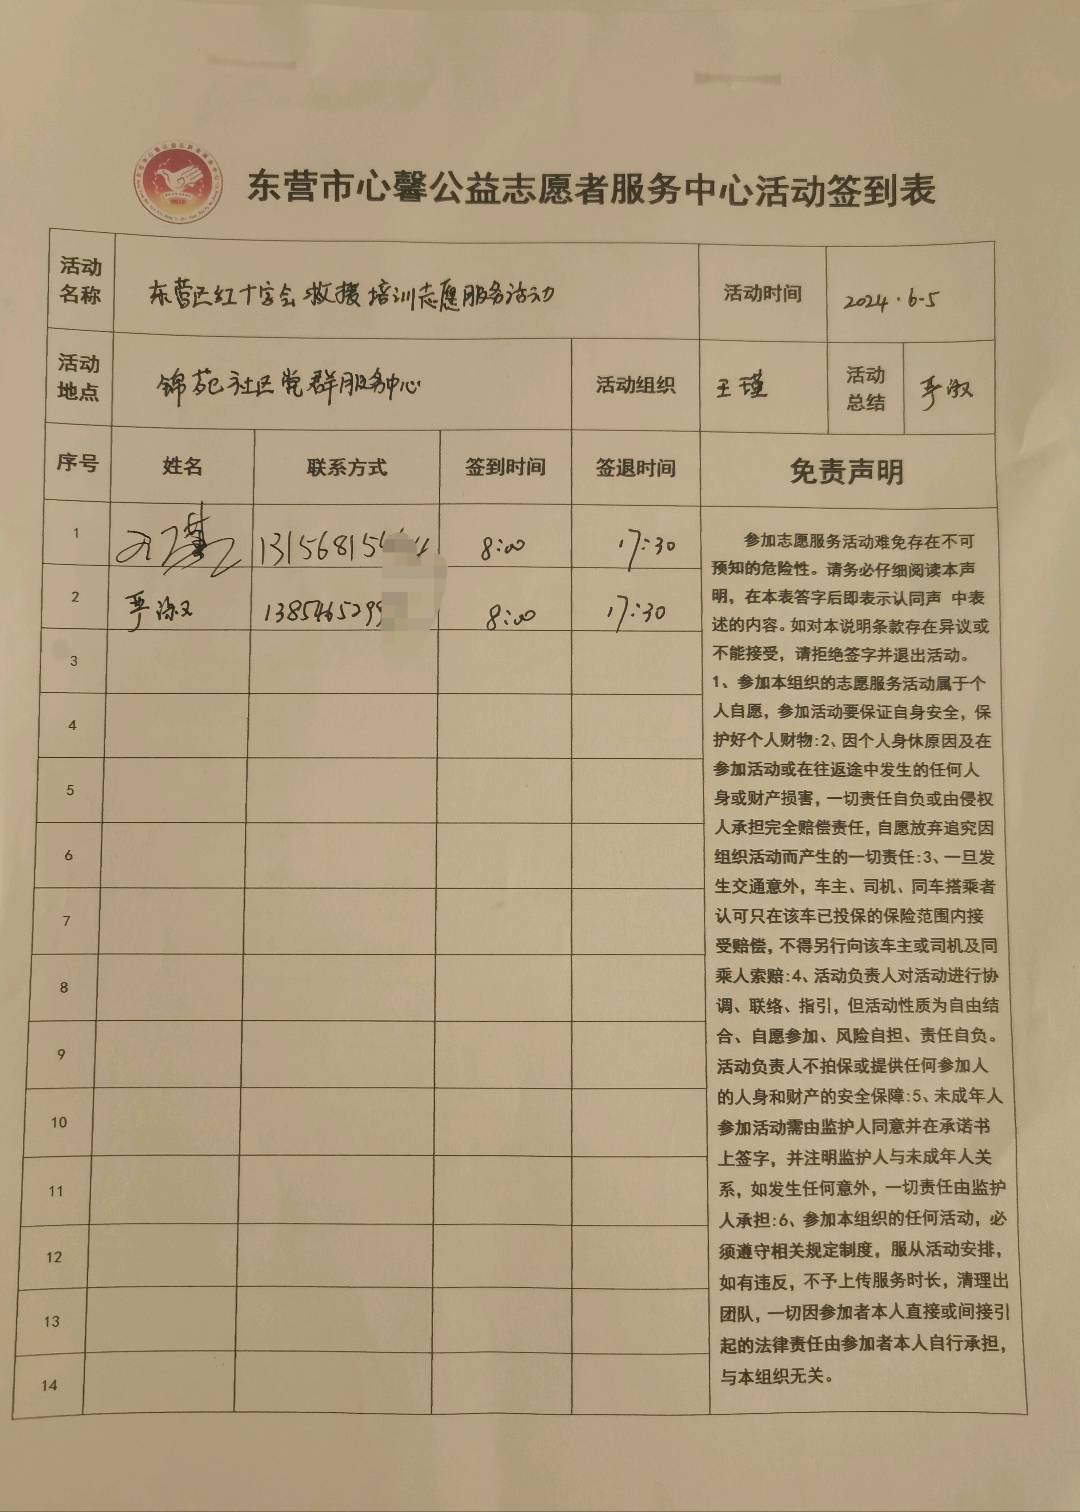 东营市心馨公益志愿者服务中心活动签到表
活动名称 东营区红十字会救援培训志愿服务活动 活动时间 2024.6-5
活动地点 锦苑社区党群服务中心 活动组织 王瑾 活动总结 严淑
序号 姓名 联系方式 签到时间 签退时间 免责声明
1 13156815 8:00 17:30
2 严淑 1385465299 8:00 17:30
3
4
5
6
7
8
9
10
11
12
13
14
参加志愿服务活动难免存在不可
预知的危险性。请务必仔细阅读本声
明，在本表答字后即表示认同声 中表
述的内容。如对本说明条款存在异议或
不能接受，请拒绝签字并退出活动。
1、参加本组织的志愿服务活动属于个
人自愿，参加活动要保证自身安全，保
护好个人财物:2、因个人身休原因及在
参加活动或在往返途中发生的任何人
身或财产损害，一切责任自负或由侵权
人承担完全赔偿责任，自愿放弃追究因
组织活动而产生的一切责任:3、一旦发
生交通意外，车主、司机、同车搭乘者
认可只在该车已投保的保险范围内接
受赔偿，不得另行向该车主或司机及同
乘人索赔:4、活动负责人对活动进行协
调、联络、指引，但活动性质为自由结
合、自愿参加、风险自担、责任自负。
活动负责人不拍保或提供任何参加人
的人身和财产的安全保障:5、未成年人
参加活动需由监护人同意并在承诺书
上签字，并注明监护人与未成年人关
系，如发生任何意外，一切责任由监护
人承担:6、参加本组织的任何活动，必
须遵守相关规定制度，服从活动安排，
如有违反，不予上传服务时长，清理出
团队，一切因参加者本人直接或间接引
起的法律责任由参加者本人自行承担，
与本组织无关。